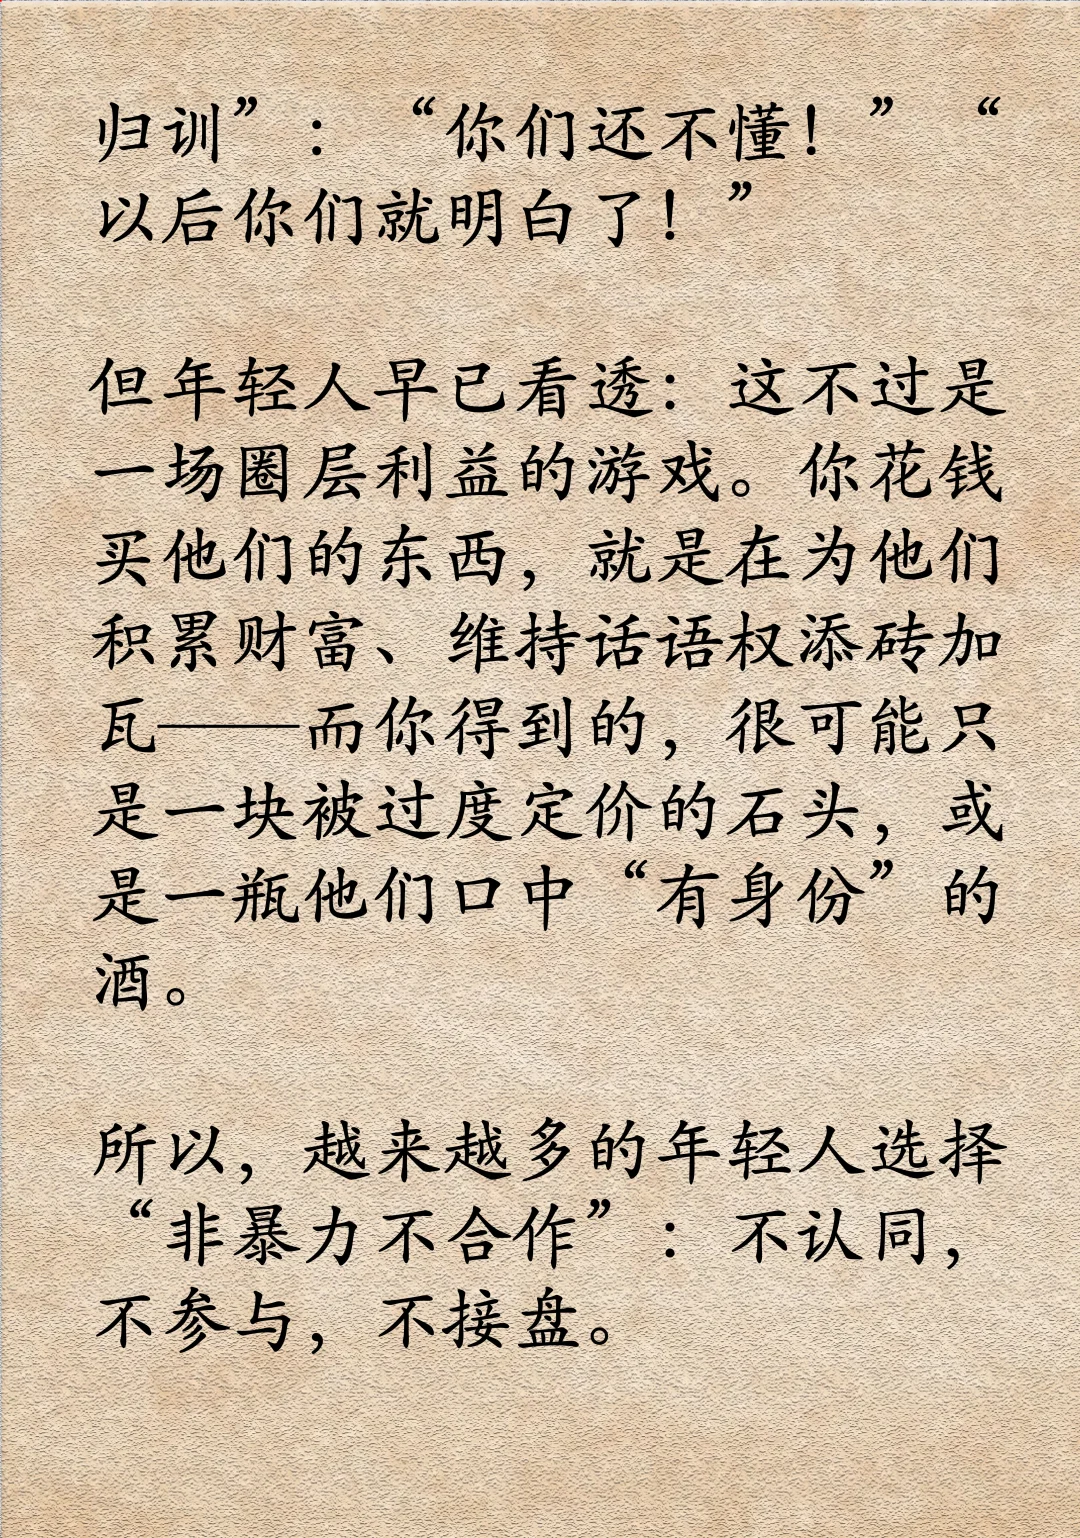 归训”：“你们还不懂！”“
以后你们就明白了！”
但年轻人早已看透：这不过是
一场圈层利益的游戏。你花钱
买他们的东西，就是在为他们
积累财富、维持话语权添砖加
瓦——而你得到的，很可能只
是一块被过度定价的石头，或
是一瓶他们口中“有身份”的
酒。
所以，越来越多的年轻人选择
“非暴力不合作”：不认同，
不参与，不接盘。